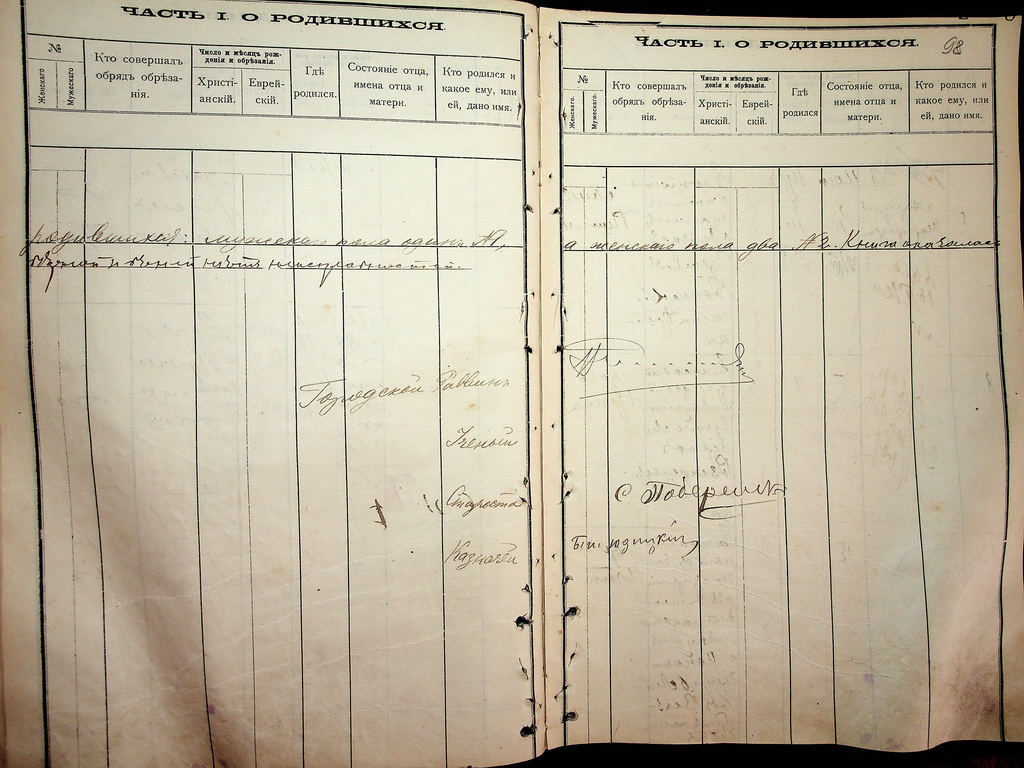 ЧАСТЬ I. О РОДИВШИХСЯ.
№
Женскаго
Мужескаго
Кто совершалъ обрядъ обрѣзанія.
Число и мѣсяцъ рожденія и обрѣзанія.
Христіанскій.
Еврейскій.
Гдѣ родился.
Состояніе отца, имена отца и матери.
Кто родился и какое ему, или ей, дано имя.
родившихся: мужскаго пола одинъ №1,
нѣтъ
Городской Раввинъ
Ученый
Староста
Казначей
ЧАСТЬ I. О РОДИВШИХСЯ.
98
№
Женскаго.
Мужескаго.
Кто совершалъ обрядъ обрѣзанія.
Число и мѣсяцъ рожденія и обрѣзанія.
Христіанскій.
Еврейскій.
Гдѣ родился
Состояніе отца, имена отца и матери.
Кто родился и какое ему, или ей, дано имя.
а женскаго пола два №2. Книга
С